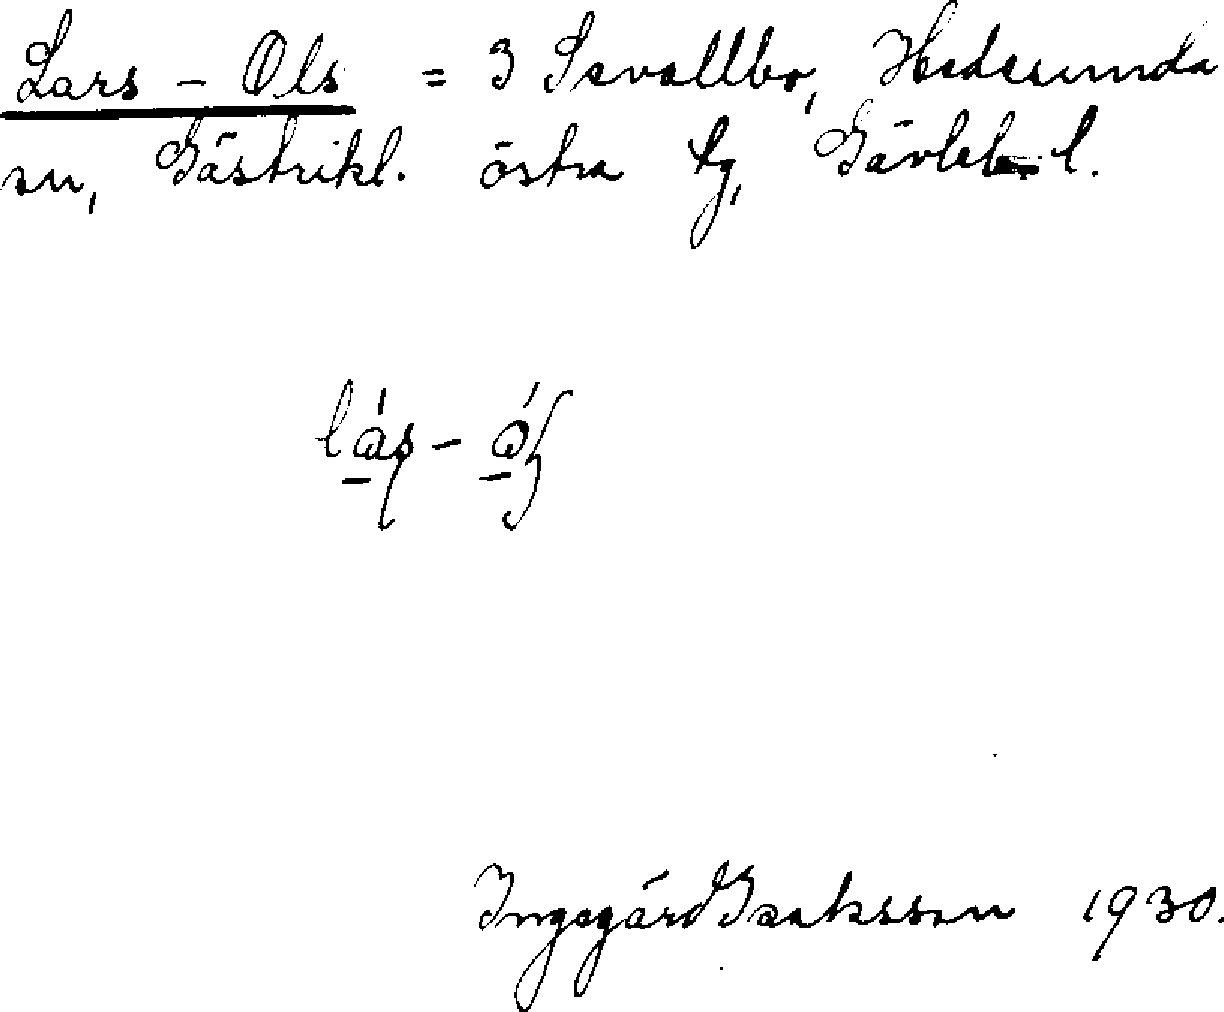 Lars-Ols = 3 Sevallbo, Hedesunda
sn, Gästrikl. östra tg, Gävleb. l.
Ingegärd Isaksson 1930.